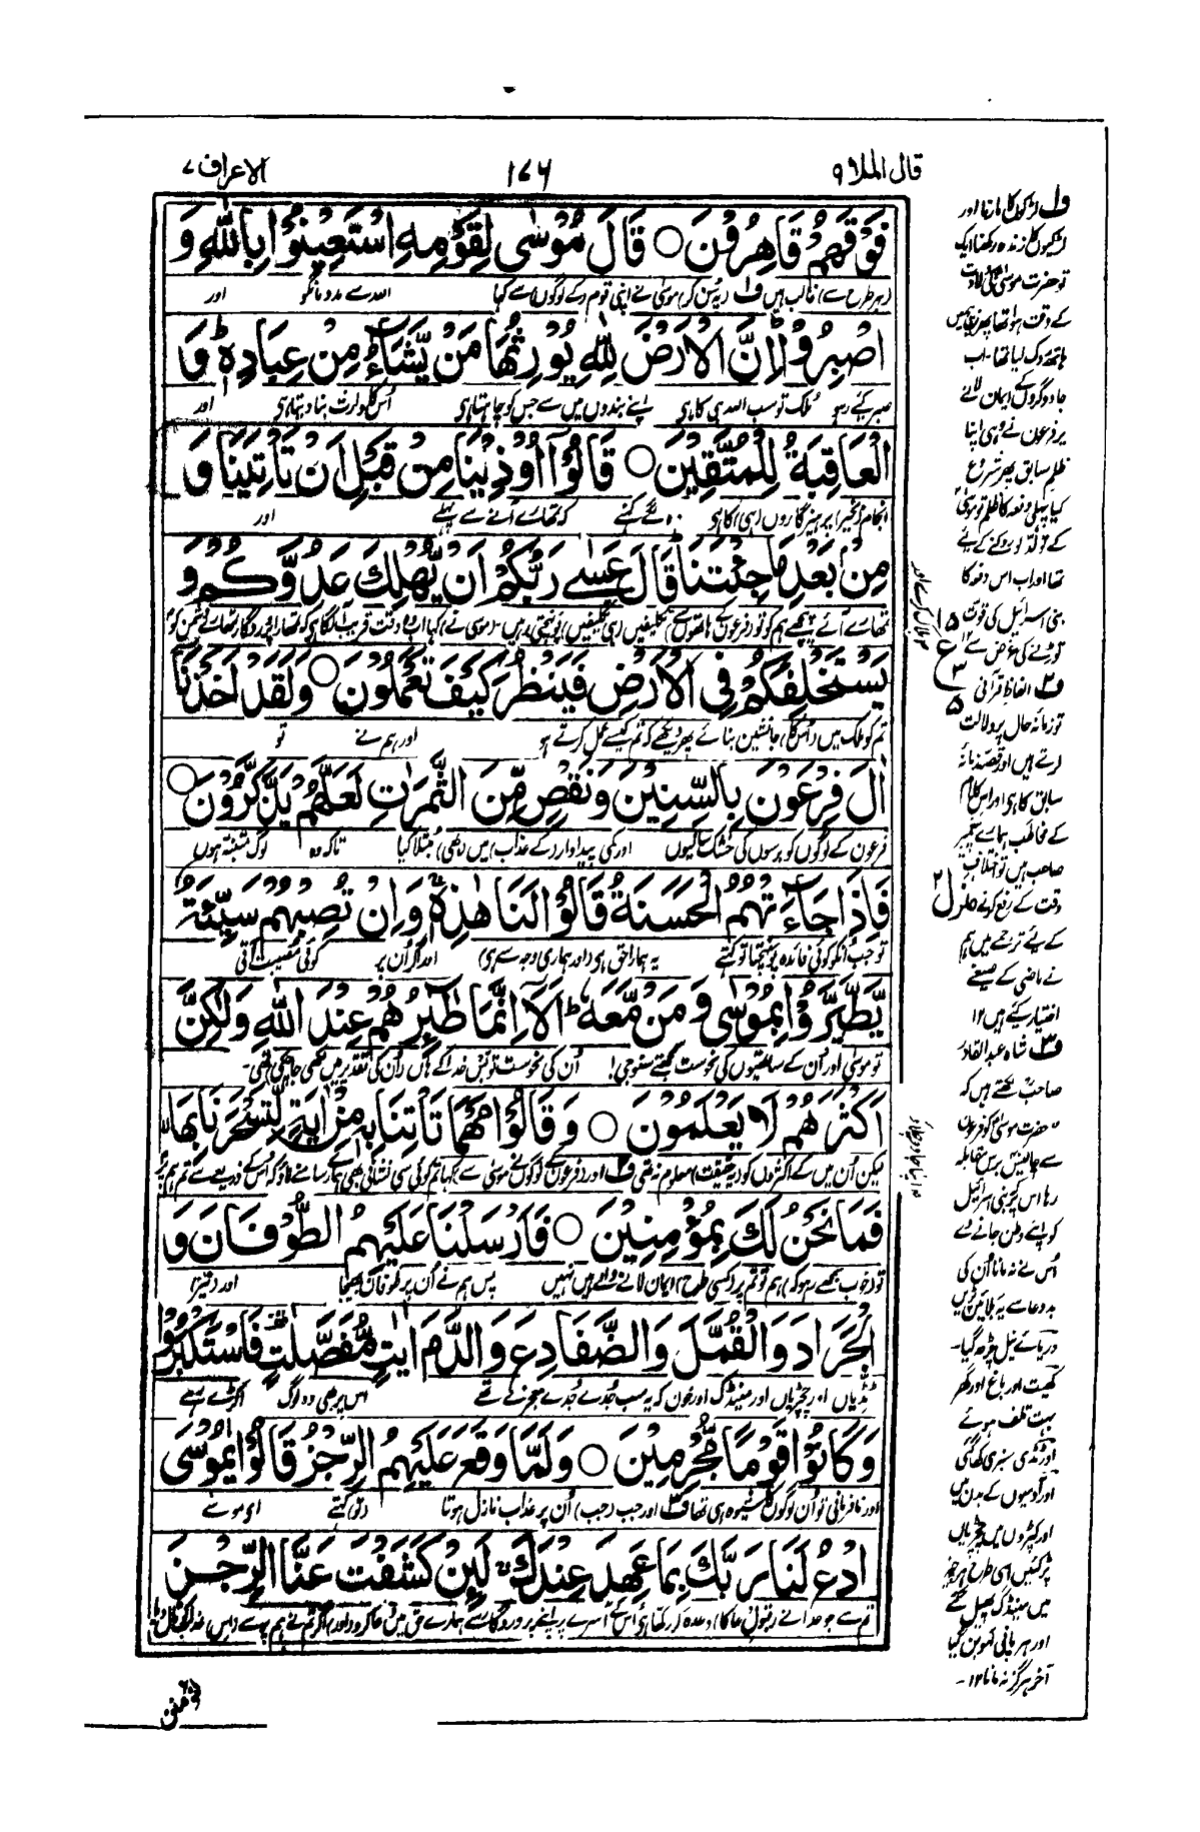 قال الملا ٩
١٧٦
الاعراف ٧
فَوْقَهُمْ قَاهِرُوْنَ ○ قَالَ مُوْسٰى لِقَوْمِهِ اسْتَعِيْنُوْا بِاللّٰهِ وَ
(ہر طرح سے) غالب ہیں ف۱ (یہ سُن کر) موسیٰ نے اپنی قوم کے لوگوں سے کہا اللہ سے مدد مانگو اور
اصْبِرُوْا ۚ اِنَّ الْاَرْضَ لِلّٰهِ يُوْرِثُهَا مَنْ يَّشَآءُ مِنْ عِبَادِهٖ ؕ وَ
صبر کئے رہو ملک تو سب اللہ ہی کا ہی اپنے بندوں میں سے جس کو چاہتا ہی اُس کا وارث بنا دیتا ہی اور
الْعَاقِبَةُ لِلْمُتَّقِيْنَ ○ قَالُوْٓا اُوْذِيْنَا مِنْ قَبْلِ اَنْ تَاْتِيَنَا وَ
انجام (بخیر) پرہیزگاروں (ہی) کا ہی وہ لگے کہنے کہ تمھارے آنے سے پہلے اور
مِنْۢ بَعْدِ مَا جِئْتَنَا ؕ قَالَ عَسٰى رَبُّكُمْ اَنْ يُّهْلِكَ عَدُوَّكُمْ وَ
تمھارے آئے پیچھے ہم کو تو (فرعون کے ہاتھوں سے) تکلیفیں (ہی تکلیفیں) پہنچتی رہیں (موسیٰ نے) کہا
يَسْتَخْلِفَكُمْ فِى الْاَرْضِ فَيَنْظُرَ كَيْفَ تَعْمَلُوْنَ ○ وَلَقَدْ اَخَذْنَآ
تم کو ملک میں (اُس کا) جانشین بنائے پھر دیکھے کہ تم کیسے عمل کرتے ہو اور ہم نے تو
اٰلَ فِرْعَوْنَ بِالسِّنِيْنَ وَنَقْصٍ مِّنَ الثَّمَرٰتِ لَعَلَّهُمْ يَذَّكَّرُوْنَ ○
فرعون کے لوگوں کو برسوں کی خشک سالیوں اور کمی پیداوار (کے عذاب) میں (بھی) مبتلا کیا تاکہ وہ لوگ متنبّہ ہوں
فَاِذَا جَآءَتْهُمُ الْحَسَنَةُ قَالُوْا لَنَا هٰذِهٖ ۚ وَاِنْ تُصِبْهُمْ سَيِّئَةٌ
تو جب انکو کوئی فائدہ پہنچتا تو کہتے یہ ہمارا حق ہی (اور ہماری وجہ سے ہی) اور اگر اُن پر کوئی مصیبت آتی
يَّطَّيَّرُوْا بِمُوْسٰى وَمَنْ مَّعَهٗ ؕ اَلَآ اِنَّمَا طٰٓئِرُهُمْ عِنْدَ اللّٰهِ وَلٰكِنَّ
تو موسیٰ اور اُن کے ساتھیوں کی نحوست سمجھتے سنو جی! اُن کی نحوست تو بس خدا کے ہاں (اُن کی تقدیر میں لکھی جا چکی) تھی۔
اَكْثَرَهُمْ لَا يَعْلَمُوْنَ ○ وَقَالُوْا مَهْمَا تَاْتِنَا بِهٖ مِنْ اٰيَةٍ لِّتَسْحَرَنَا بِهَا
لیکن اُن میں کے اکثروں کو (یہ حقیقت) معلوم نہ تھی ف۲ اور (فرعون کے) لوگوں نے موسیٰ سے کہا
فَمَا نَحْنُ لَكَ بِمُؤْمِنِيْنَ ○ فَاَرْسَلْنَا عَلَيْهِمُ الطُّوْفَانَ وَ
تو (خوب سمجھے رہو کہ) ہم تو تم پر (کسی طرح) ایمان لانے والے ہیں نہیں پس ہم نے اُن پر طوفان بھیجا اور (نیز)
الْجَرَادَ وَالْقُمَّلَ وَالضَّفَادِعَ وَالدَّمَ اٰيٰتٍ مُّفَصَّلٰتٍ فَاسْتَكْبَرُوْا
ٹڈیاں اور چچڑیاں اور مینڈک اور خون کہ یہ سب جُدے جُدے معجزے تھے اس پر بھی وہ لوگ اکڑے رہے
وَكَانُوْا قَوْمًا مُّجْرِمِيْنَ ○ وَلَمَّا وَقَعَ عَلَيْهِمُ الرِّجْزُ قَالُوْا يٰمُوْسَى
اور نافرمانی تو اُن لوگوں کا شیوہ ہی تھا ف۳ اور جب (جب) اُن پر عذاب نازل ہوتا (تو) کہتے ای موسے
ادْعُ لَنَا رَبَّكَ بِمَا عَهِدَ عِنْدَكَ ۚ لَئِنْ كَشَفْتَ عَنَّا الرِّجْزَ
ف۱ لڑکوں کا مارنا اور
لڑکیوں کا زندہ رکھنا ایک
تو حضرت موسیٰ کی ولادت
کے وقت ہوا تھا پھر
ہاتھ روک لیا تھا۔ اب
جادوگروں کے ایمان لانے
پر فرعون نے وہی اپنا
ظلم سابق پھر شروع
کیا پہلی دفعہ کا ظلم تو موسیٰ
کے تولد کو روکنے کے لیے
تھا اور اب اس دفعہ کا
بنی اسرائیل کی قوت
توڑنے کی غرض سے ۱۲
ف۲ الفاظ قرآنی
تو زمانہ حال پر دلالت
کرتے ہیں اور قصہ زمانہ
سابق کا ہی اور اس کلام
کے مخاطب ہمارے پیغمبر
صاحب ہیں تو اختلاف
وقت کے رفع کرنے
کے لیے ترجمے میں ہم
نے ماضی کے صیغے
اختیار کیے ہیں ۱۲
ف۳ شاہ عبد القادر
صاحب لکھتے ہیں کہ
حضرت موسیٰ کو فرعون
سے چالیس برس مقابلہ
رہا اس پر کہ بنی اسرائیل
کو اپنے وطن جانے دے
اُس نے نہ مانا اُن کی
بد دعا سے یہ بلائیں پڑیں
دریائے نیل چڑھ گیا۔
کھیت اور باغ اور گھر
بہت تلف ہوئے
اور ٹڈی سبزی کھا گئی
اور آدمیوں کے بدن میں
اور کپڑوں میں چچڑیاں
پڑ گئیں اسی طرح ہر چیز
میں مینڈک پھیل گئے
اور ہر پانی لہو بن گیا
آخر ہرگز نہ مانا ۱۲۔
ع
منزل ۲